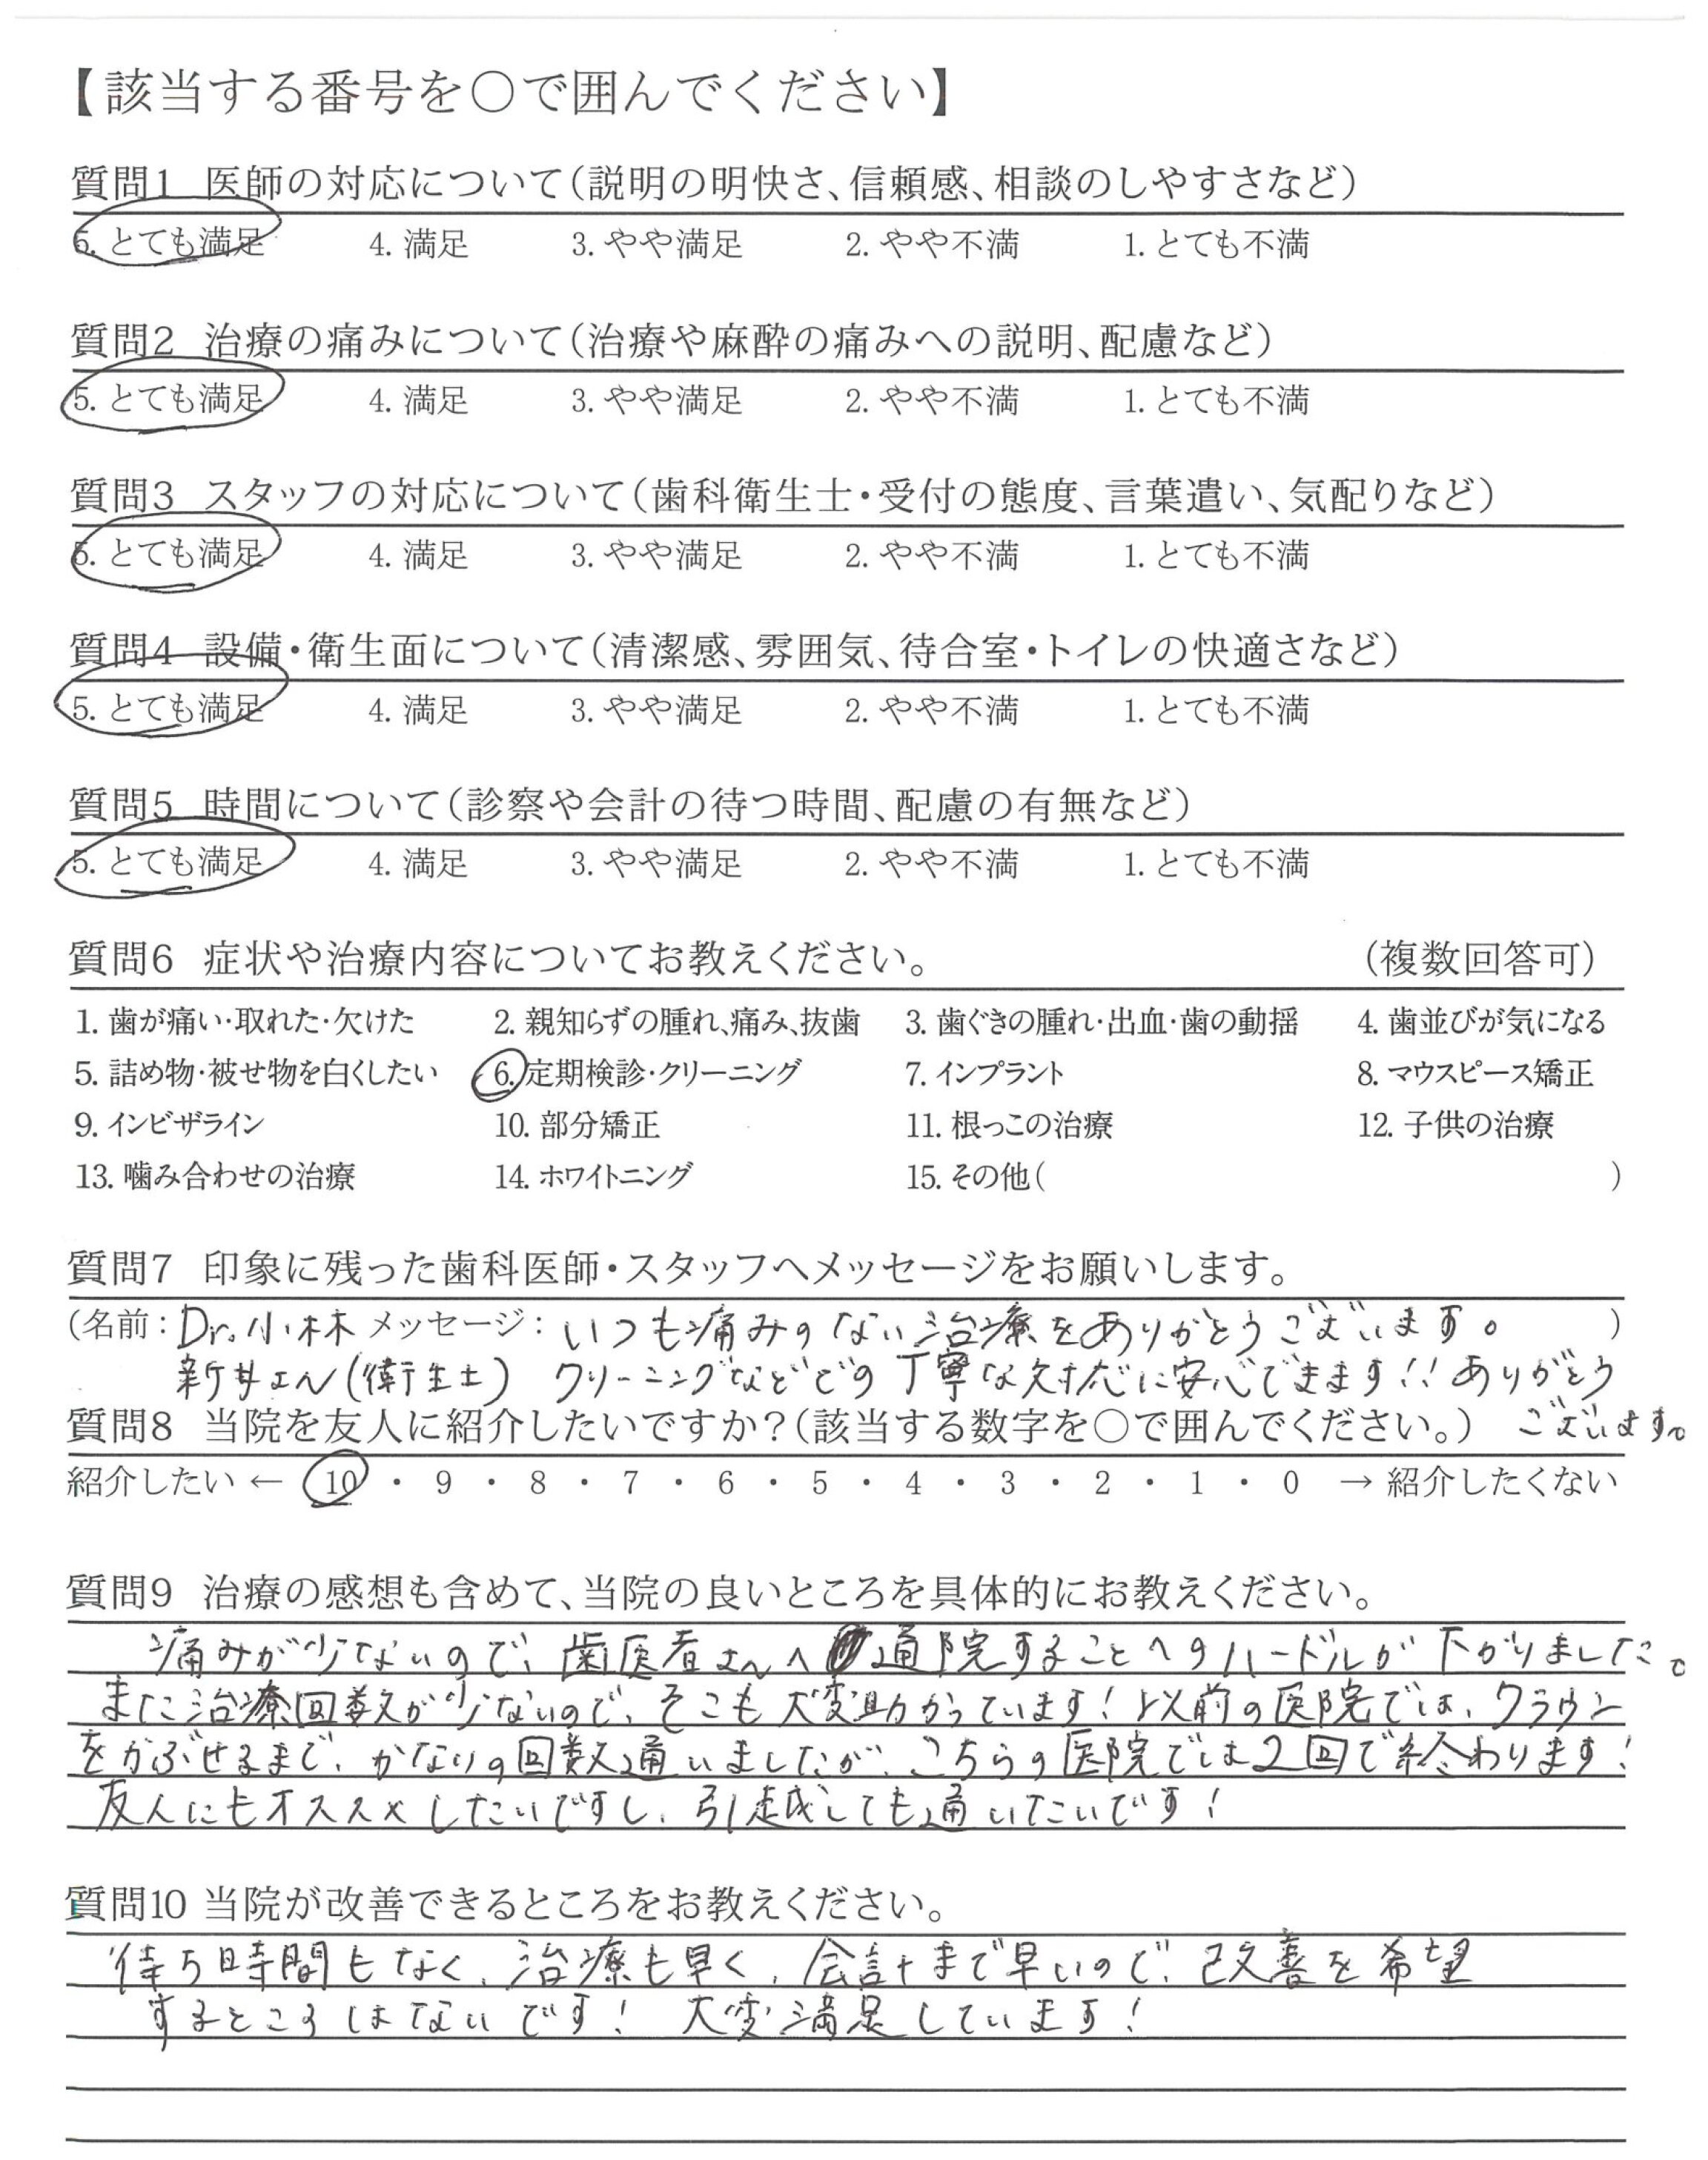 【該当する番号を○で囲んでください】
質問1 医師の対応について(説明の明快さ、信頼感、相談のしやすさなど)
5. とても満足 4. 満足 3. やや満足 2. やや不満 1. とても不満
質問2 治療の痛みについて(治療や麻酔の痛みへの説明、配慮など)
5. とても満足 4. 満足 3. やや満足 2. やや不満 1. とても不満
質問3 スタッフの対応について(歯科衛生士・受付の態度、言葉遣い、気配りなど)
5. とても満足 4. 満足 3. やや満足 2. やや不満 1. とても不満
質問4 設備・衛生面について(清潔感、雰囲気、待合室・トイレの快適さなど)
5. とても満足 4. 満足 3. やや満足 2. やや不満 1. とても不満
質問5 時間について(診察や会計の待つ時間、配慮の有無など)
5. とても満足 4. 満足 3. やや満足 2. やや不満 1. とても不満
質問6 症状や治療内容についてお教えください。 (複数回答可)
1. 歯が痛い・取れた・欠けた 2. 親知らずの腫れ、痛み、抜歯 3. 歯ぐきの腫れ・出血・歯の動揺 4. 歯並びが気になる
5. 詰め物・被せ物を白くしたい 6. 定期検診・クリーニング 7. インプラント 8. マウスピース矯正
9. インビザライン 10. 部分矯正 11. 根っこの治療 12. 子供の治療
13. 噛み合わせの治療 14. ホワイトニング 15. その他( )
質問7 印象に残った歯科医師・スタッフへメッセージをお願いします。
(名前：Dr.小林 メッセージ：いつも痛みのない治療をありがとうございます。 )
新井さん(衛生士) クリーニングなどどの丁寧な対応に安心できます!!ありがとう
ございます。
質問8 当院を友人に紹介したいですか?(該当する数字を○で囲んでください。)
紹介したい ← 10 ・ 9 ・ 8 ・ 7 ・ 6 ・ 5 ・ 4 ・ 3 ・ 2 ・ 1 ・ 0 → 紹介したくない
質問9 治療の感想も含めて、当院の良いところを具体的にお教えください。
痛みが少ないので、歯医者さんへ通院することへのハードルが下がりました。
また治療回数が少ないので、そこも大変助かっています!以前の医院では、クラウン
をかぶせるまで、かなりの回数通いましたが、こちらの医院では2回で終わります!
友人にもオススメしたいですし、引越しても通いたいです!
質問10 当院が改善できるところをお教えください。
待ち時間もなく、治療も早く、会計まで早いので、改善を希望
するところはないです! 大変満足しています!